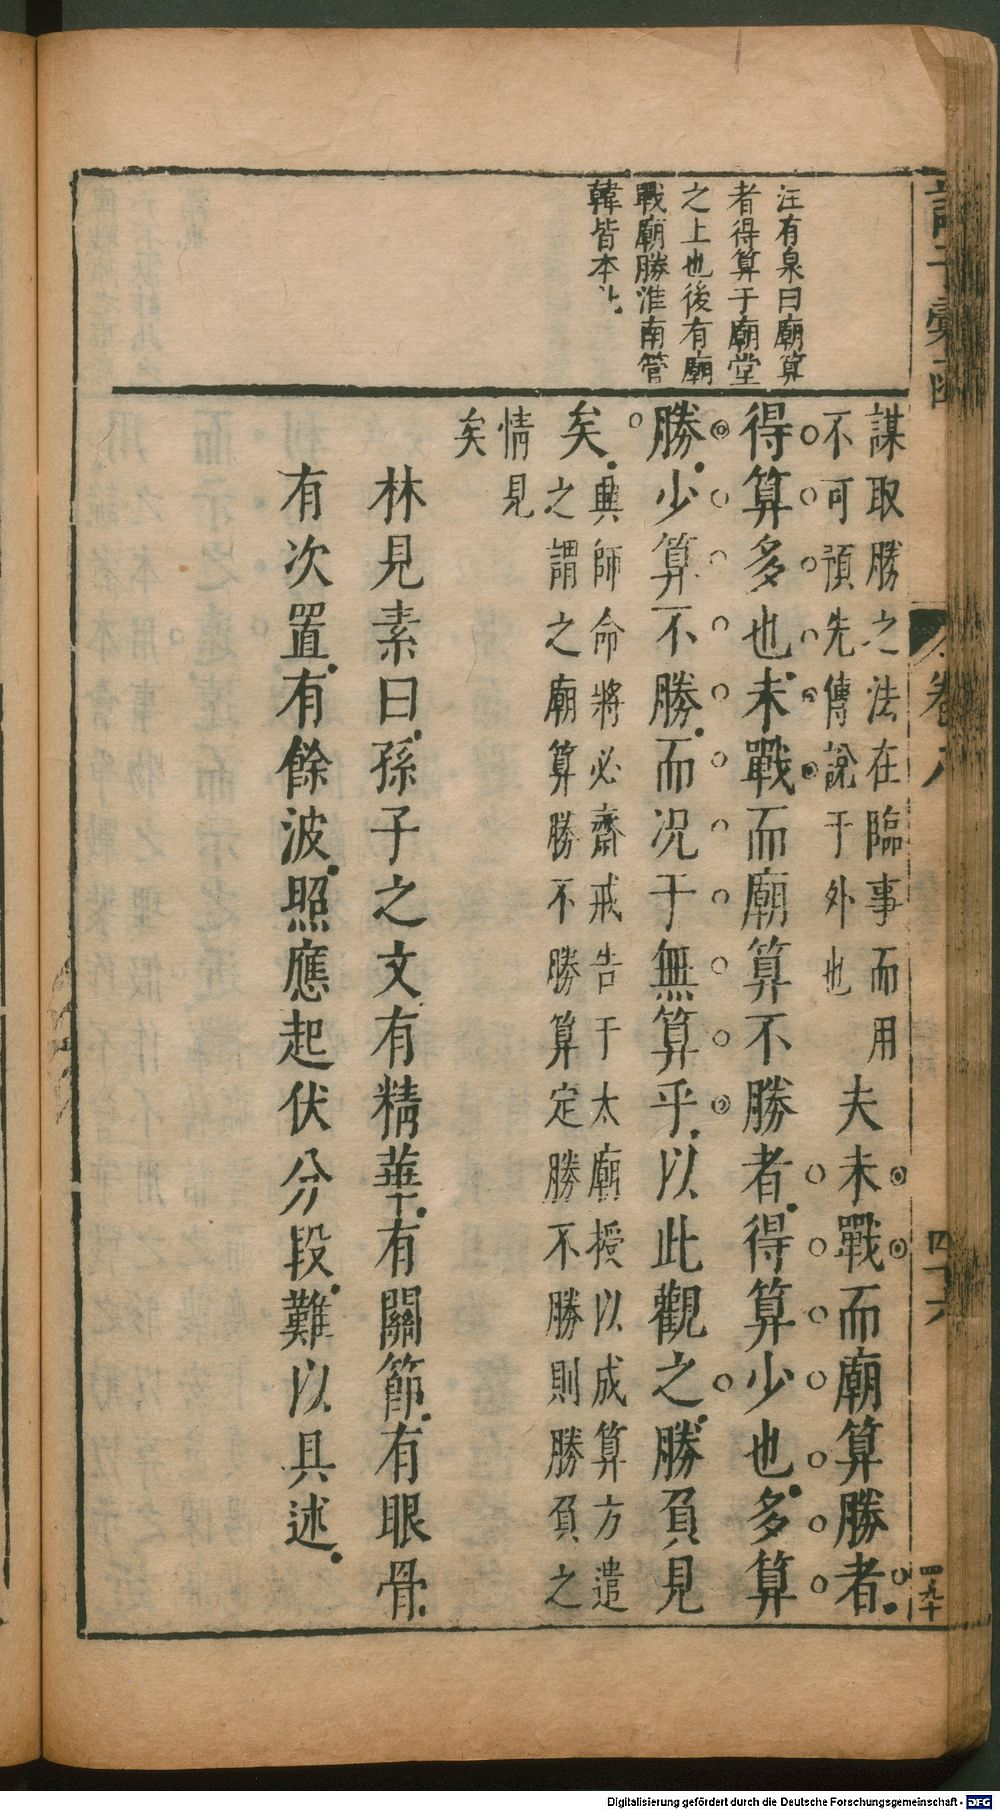 汪有泉曰廟算
者得算于廟堂
之上也後有廟
戰廟勝淮南管
韓皆本此
謀取勝之法在臨事而用
不可預先傳說于外也
夫未戰而廟算勝者
得算多也未戰而廟算不勝者得算少也多算
勝少算不勝而况于無算乎以此觀之勝負見
矣
興師命將必齋戒告于太廟授以成算方遣
之謂之廟算勝不勝算定勝不勝則勝負之
情見
矣
林見素曰孫子之文有精華有關節有眼骨
有次置有餘波照應起伏分段難以具述
卷八
四十六
Digitalisierung gefördert durch die Deutsche Forschungsgemeinschaft - DFG